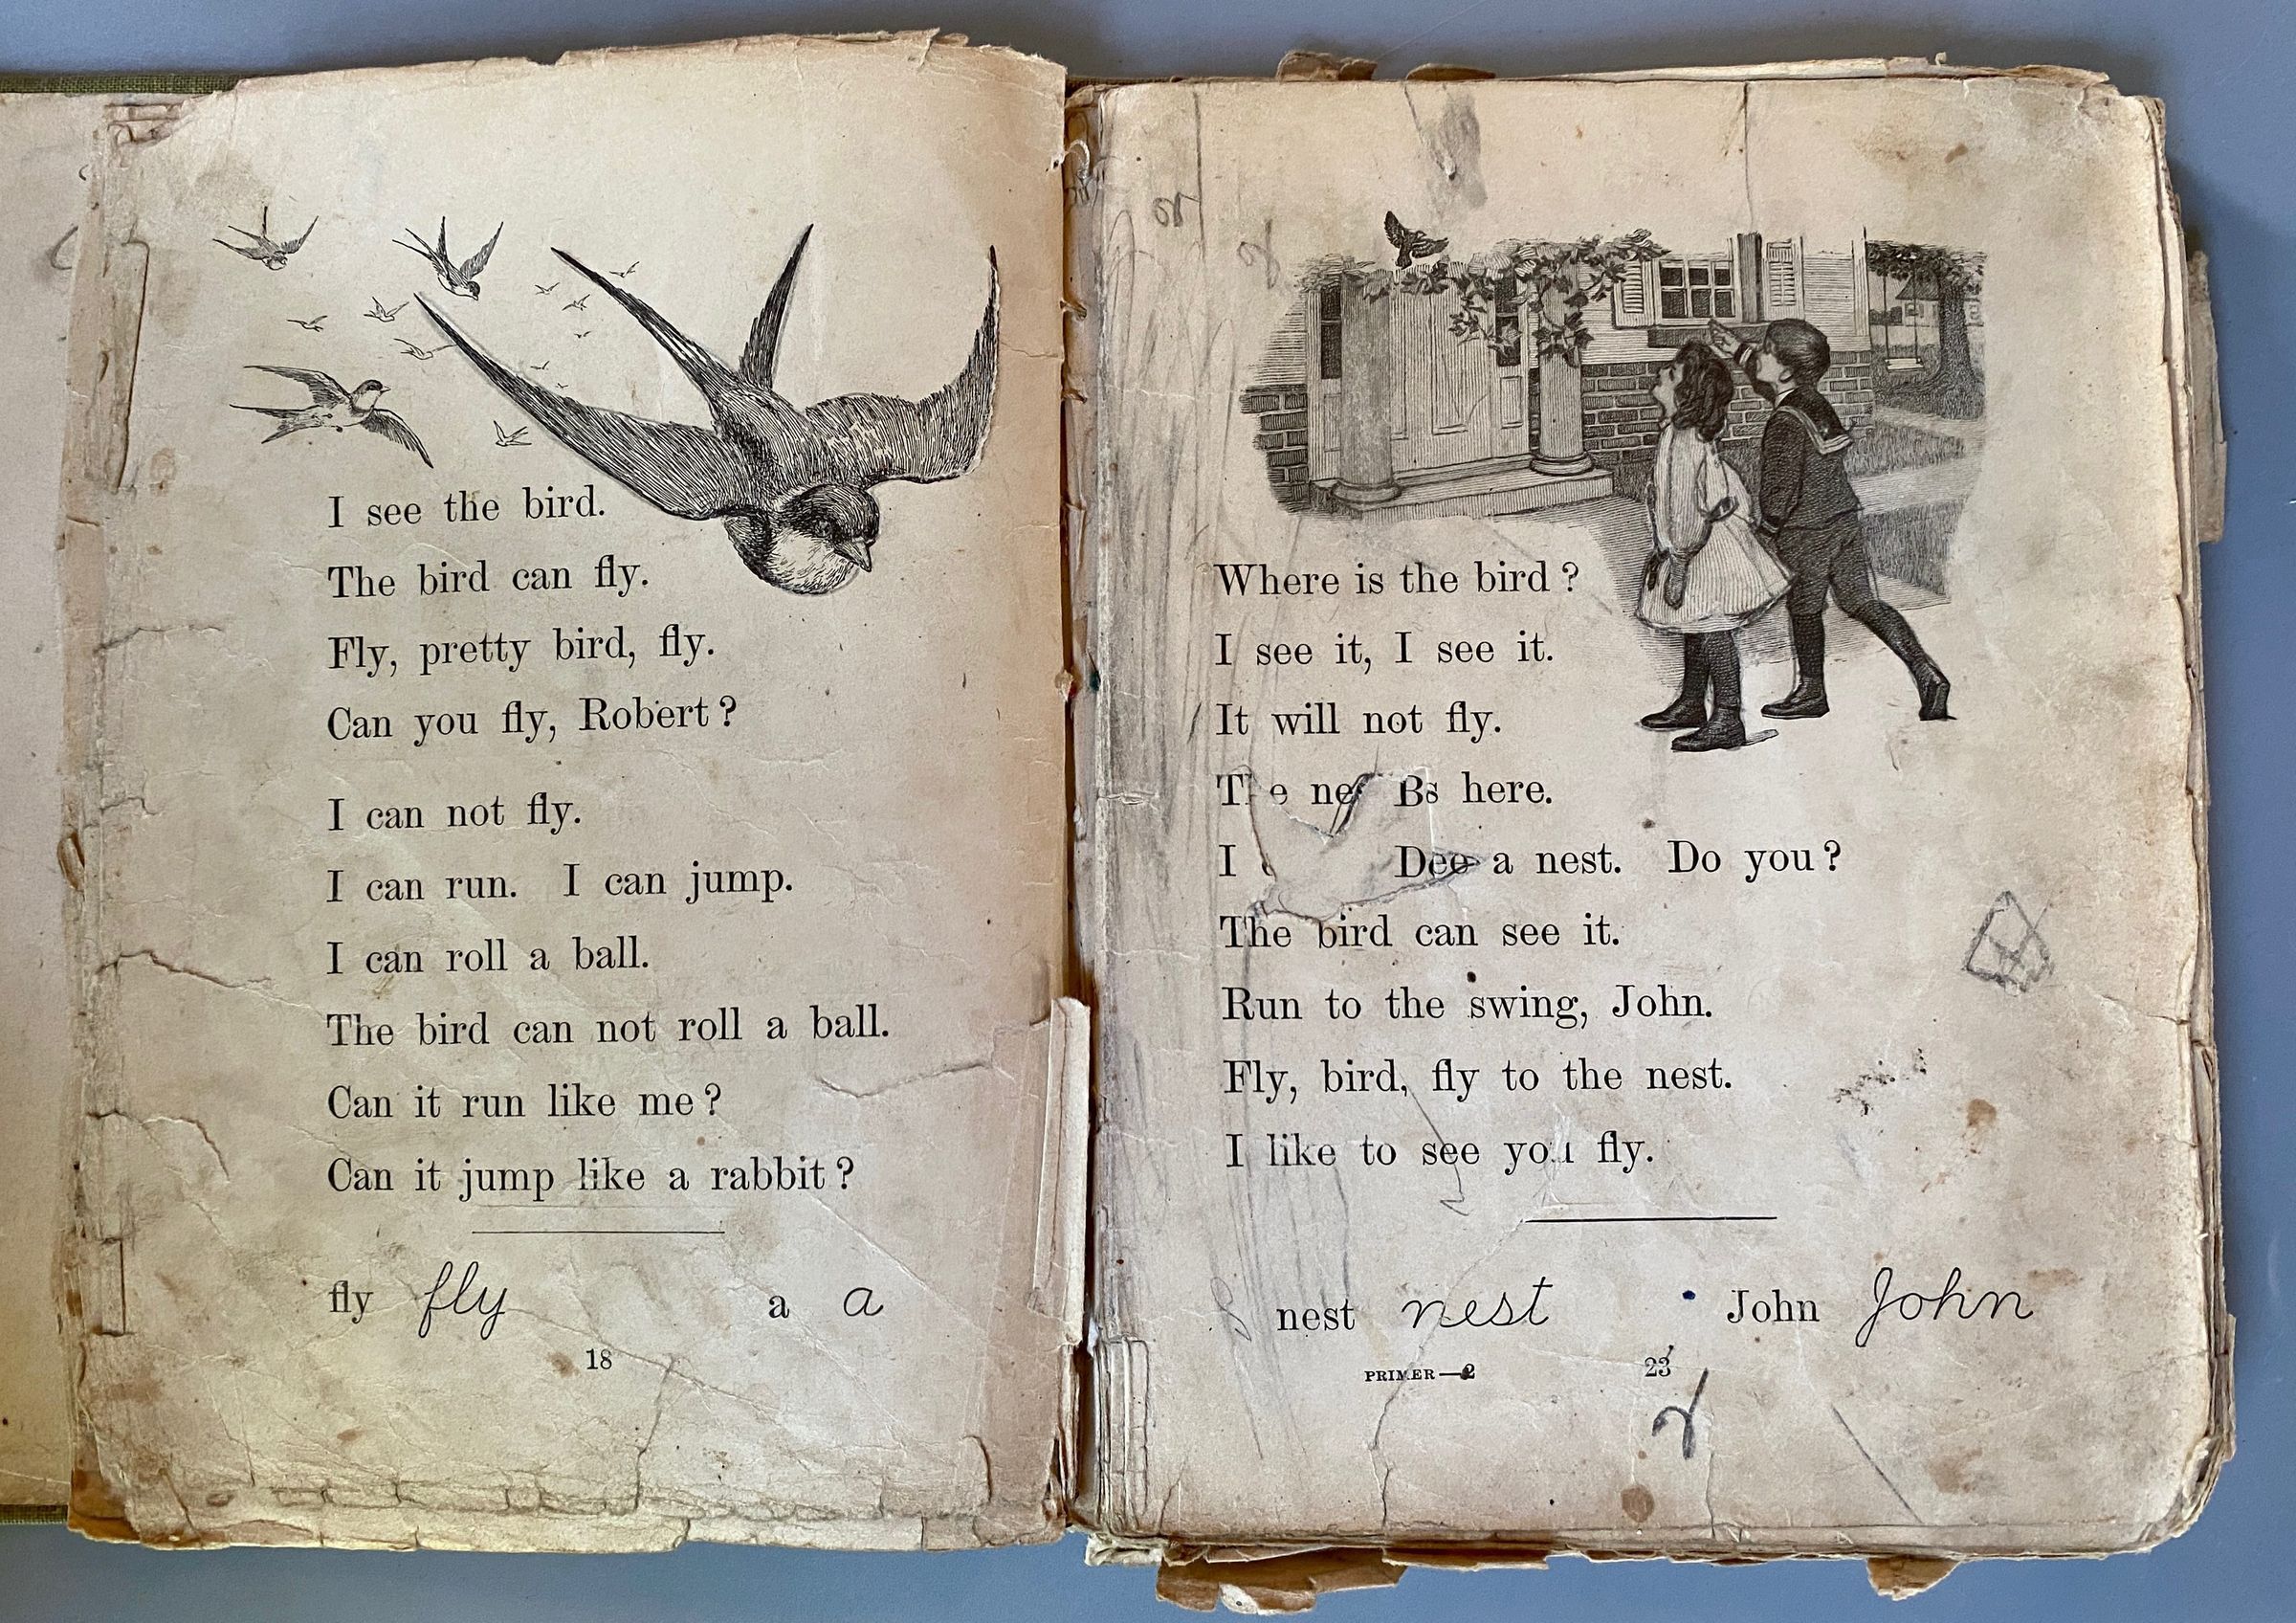 I see the bird.
The bird can fly.
Fly, pretty bird, fly.
Can you fly, Robert?
I can not fly.
I can run. I can jump.
I can roll a ball.
The bird can not roll a ball.
Can it run like me?
Can it jump like a rabbit?
fly fly a a
18
Where is the bird?
I see it, I see it.
It will not fly.
here.
I a nest. Do you?
The bird can see it.
Run to the swing, John.
Fly, bird, fly to the nest.
I like to see you fly.
nest nest John John
PRIMER—2 23